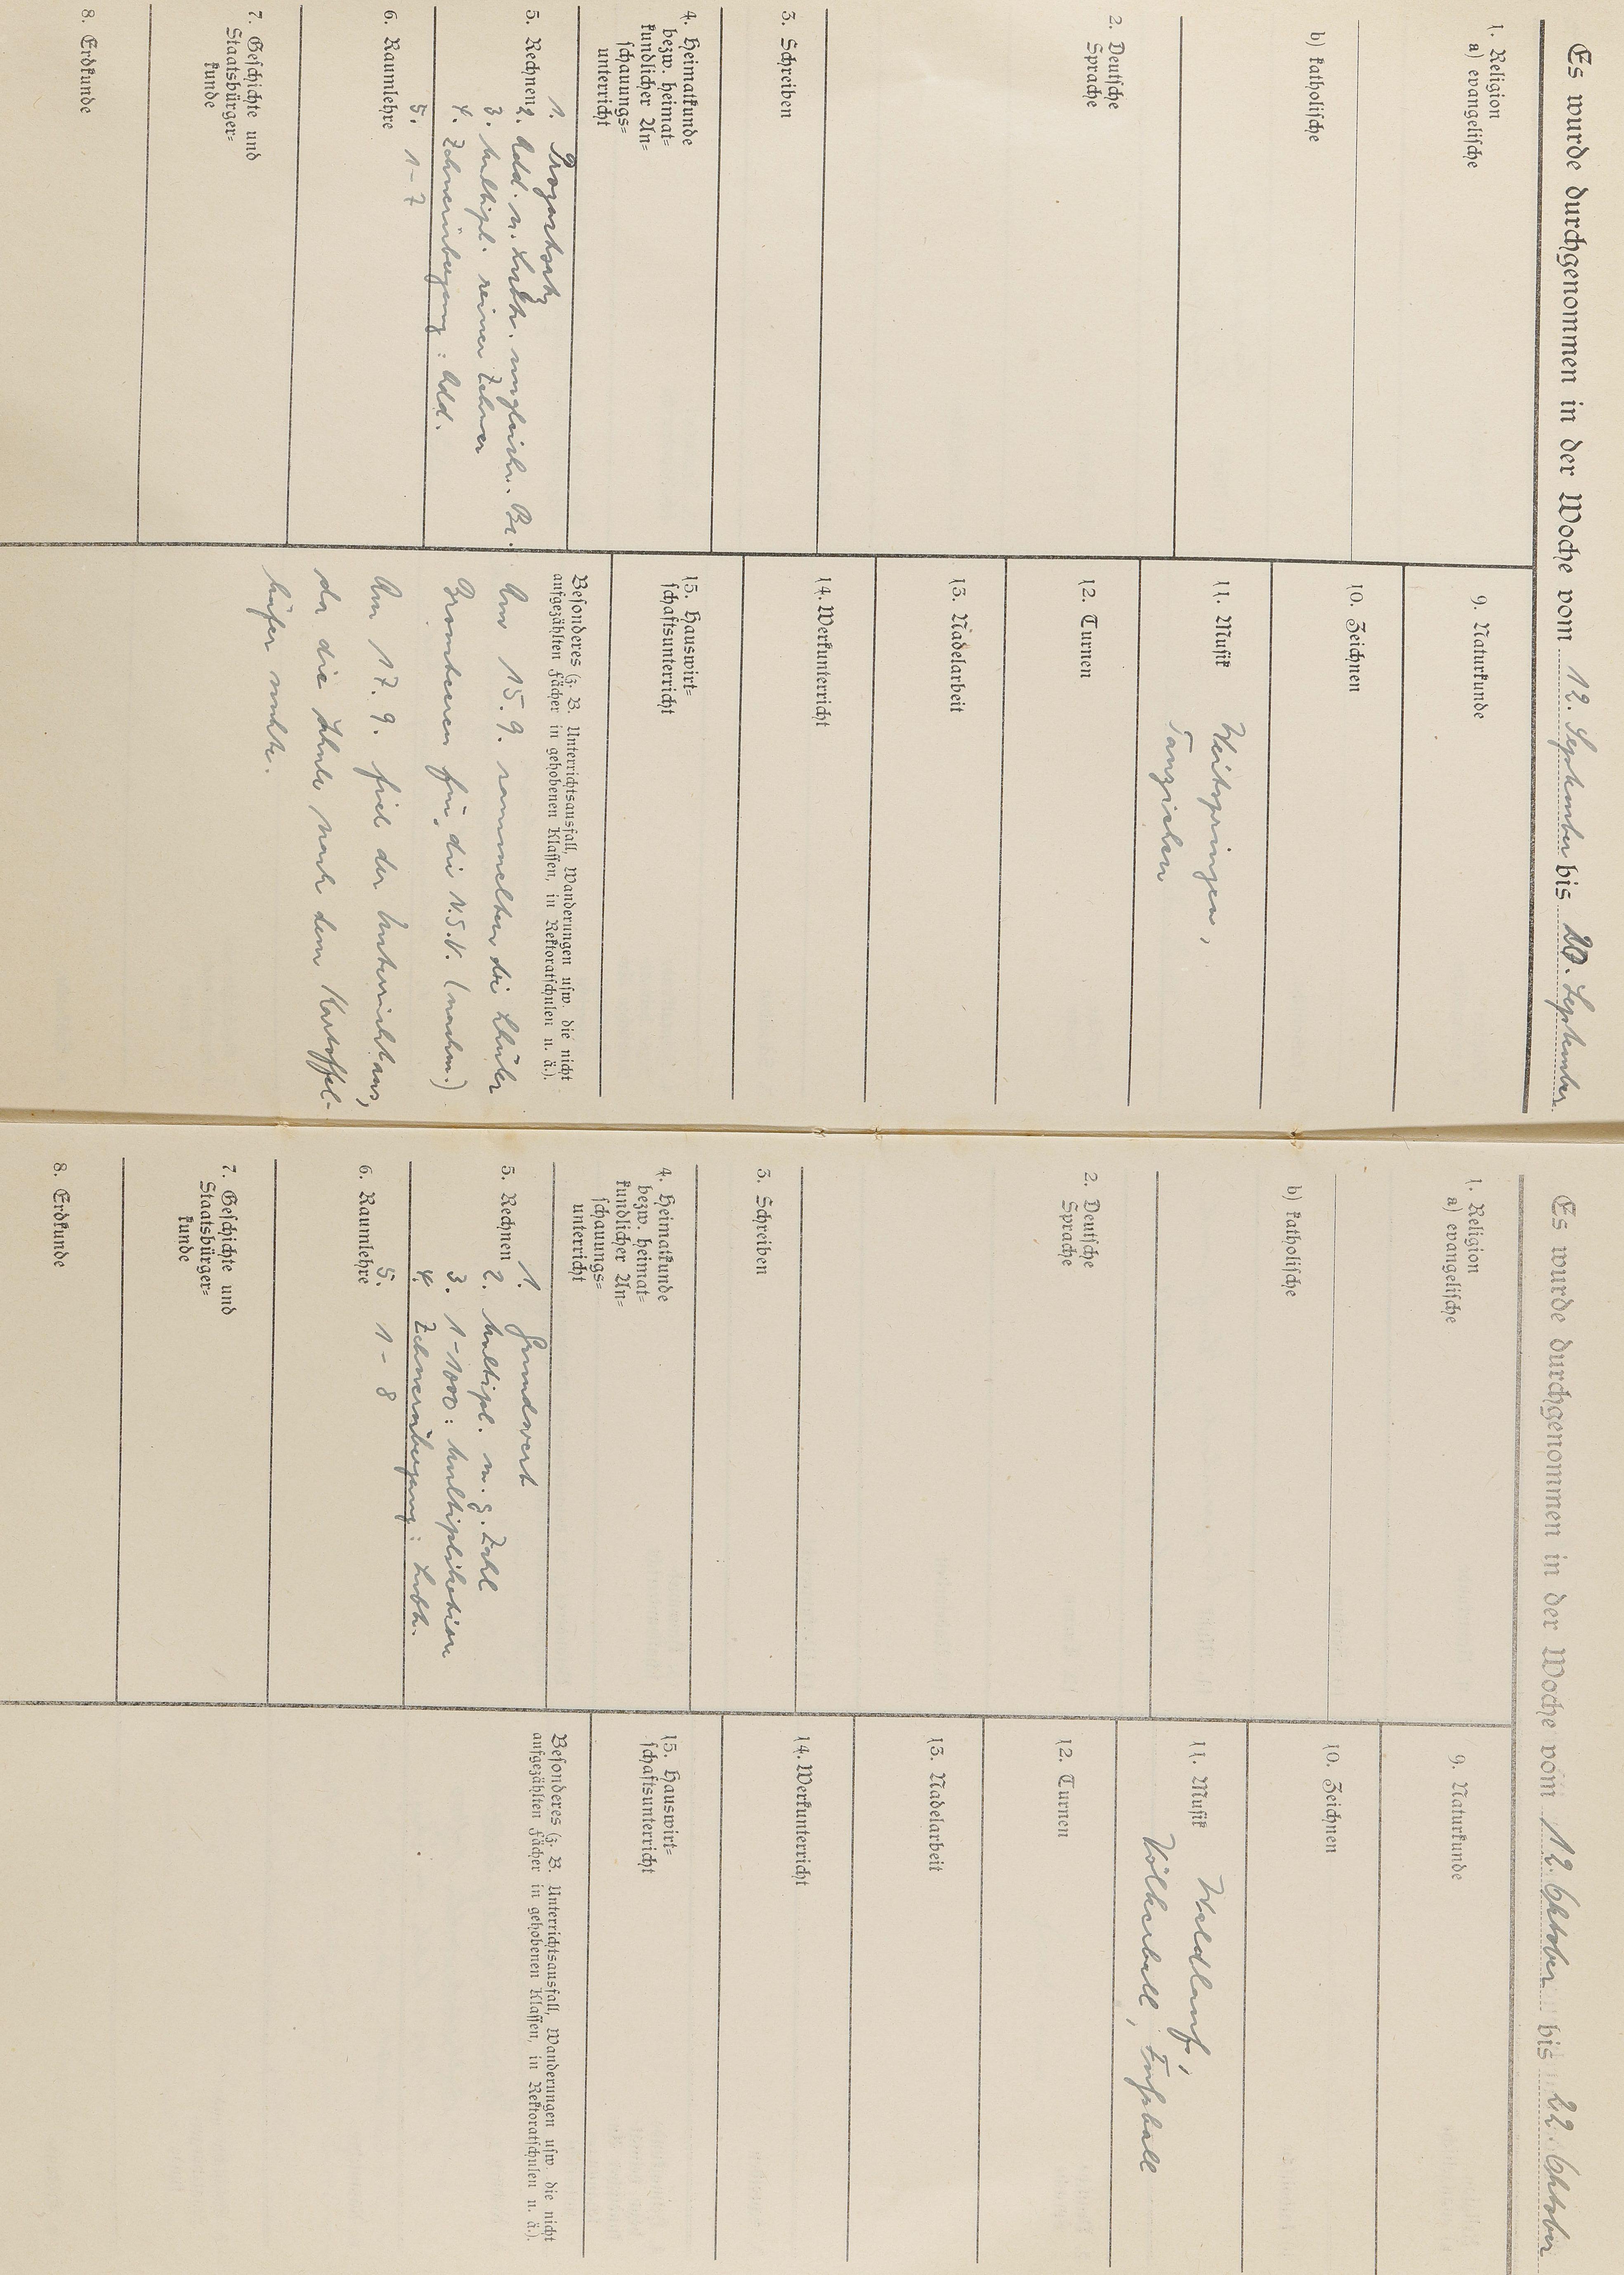 Es wurde durchgenommen in der Woche vom 12. September bis 20. September
1. Religion
a) evangelische
b) katholische
2. Deutsche
Sprache
3. Schreiben
4. Heimatkunde
bezw. heimat=
kundlicher An=
schauungs=
unterricht
5. Rechnen
1. Prozentsatz
2. Add. u. Subtr. ungleichn. Br.
3. Multipl. reiner Zehner
4. Zehnerübergang: Add.
5. 1-7
6. Raumlehre
7. Geschichte und
Staatsbürger=
kunde
8. Erdkunde
9. Naturkunde
10. Zeichnen
11. Musik
Weitspringen,
Tauziehen
12. Turnen
13. Nadelarbeit
14. Werkunterricht
15. Hauswirt=
schaftsunterricht
Besonderes (z. B. Unterrichtsausfall, Wanderungen usw. die nicht
aufgezählten Fächer in gehobenen Klassen, in Rektoratschulen u. ä.).
Am 15. 9. sammelten die Schüler
Brombeeren für die N.S.V. (nachm.)
Am 17. 9. fiel der Unterricht aus,
da die Schule nach dem Kartoffel-
käfer suchte.
Es wurde durchgenommen in der Woche vom 12. Oktober bis 22. Oktober
1. Religion
a) evangelische
b) katholische
2. Deutsche
Sprache
3. Schreiben
4. Heimatkunde
bezw. heimat=
kundlicher An=
schauungs=
unterricht
5. Rechnen
1. Grundwert
2. Multipl. m. g. Zahl
3. 1-1000: Multiplikation
4. Zehnerübergang: Subtr.
5. 1-8
6. Raumlehre
7. Geschichte und
Staatsbürger=
kunde
8. Erdkunde
9. Naturkunde
10. Zeichnen
11. Musik
Waldlauf,
Völkerball, Fußball
12. Turnen
13. Nadelarbeit
14. Werkunterricht
15. Hauswirt=
schaftsunterricht
Besonderes (z. B. Unterrichtsausfall, Wanderungen usw. die nicht
aufgezählten Fächer in gehobenen Klassen, in Rektoratschulen u. ä.).